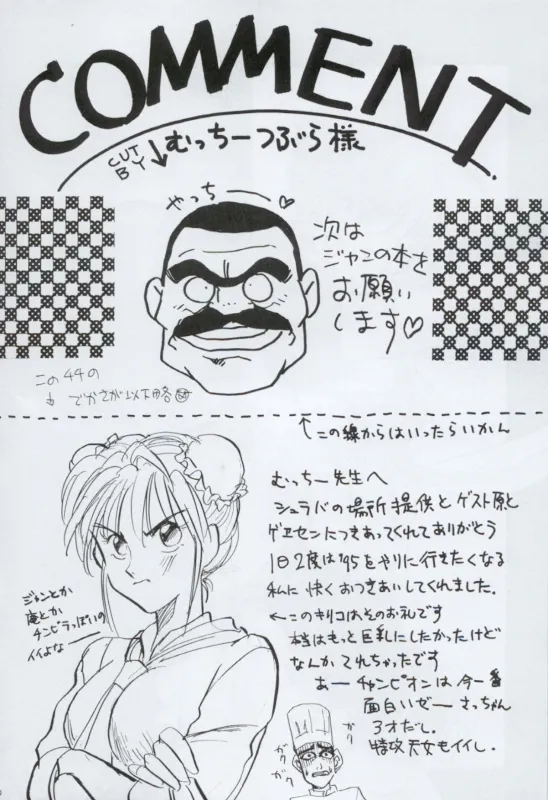 COMMENT
CUT BY
むっちーつぶら様
やっちー♡
次は
ジャンの本を
お願い
します♡
この44の
でかさが以下略
↑この線からはいったらいかん
むっちー先生へ
シュラバの場所提供とゲスト原と
ゲエセンにつきあってくれてありがとう
1日2度は'95をやりに行きたくなる
私に快くおつきあいしてくれました。
←このキリコはそのお礼です
本当はもっと巨乳にしたかったけど
なんかてれちゃったです
あーチャンピオンは今一番
面白いぜー さっちゃん
3才だし。
特攻天女もイイし。
ジャンとか
庵とか
チンピラっぽいの
イイよなー
ガク
ガク
ガク